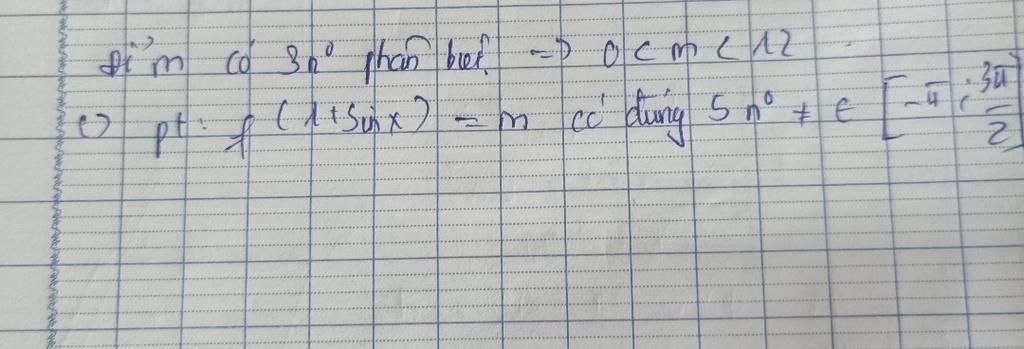 Để m có 3n⁰ phân biệt => 0 < m < 12
c) pt: f(1+sinx) = m có đúng 5 n⁰ ≠ ∈ [-π; 3π/2]